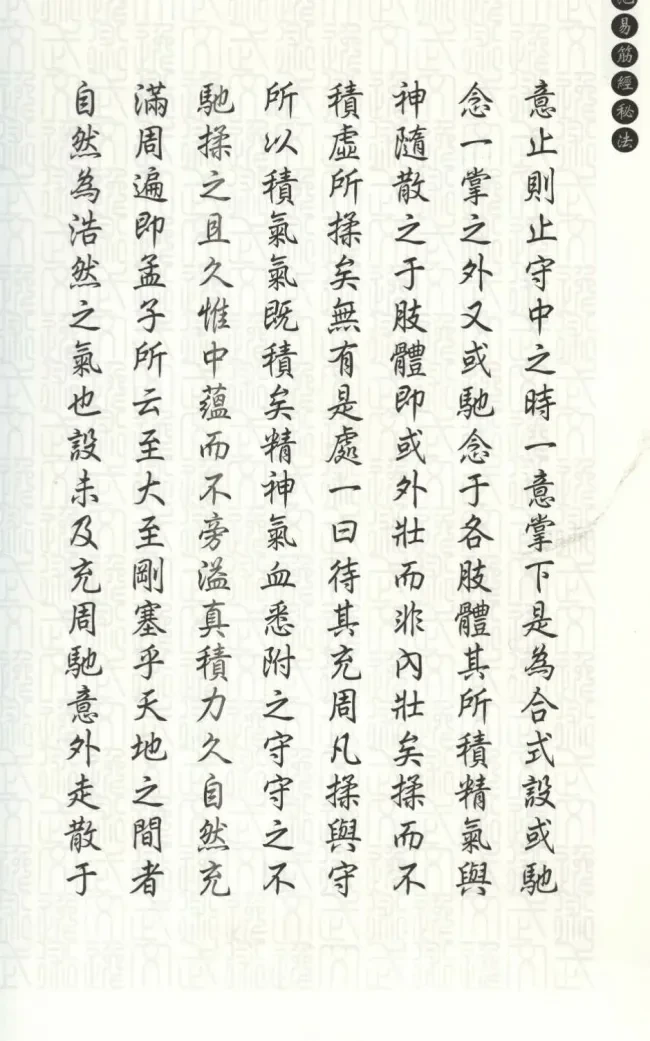 易筋經秘法
意止則止守中之時一意掌下是為合式設或馳
念一掌之外又或馳念于各肢體其所積精氣與
神隨散之于肢體即或外壯而非內壯矣揉而不
積虛所揉矣無有是處一曰待其充周凡揉與守
所以積氣氣既積矣精神氣血悉附之守守之不
馳揉之且久惟中蘊而不旁溢真積力久自然充
滿周遍即孟子所云至大至剛塞乎天地之間者
自然為浩然之氣也設未及充周馳意外走散于